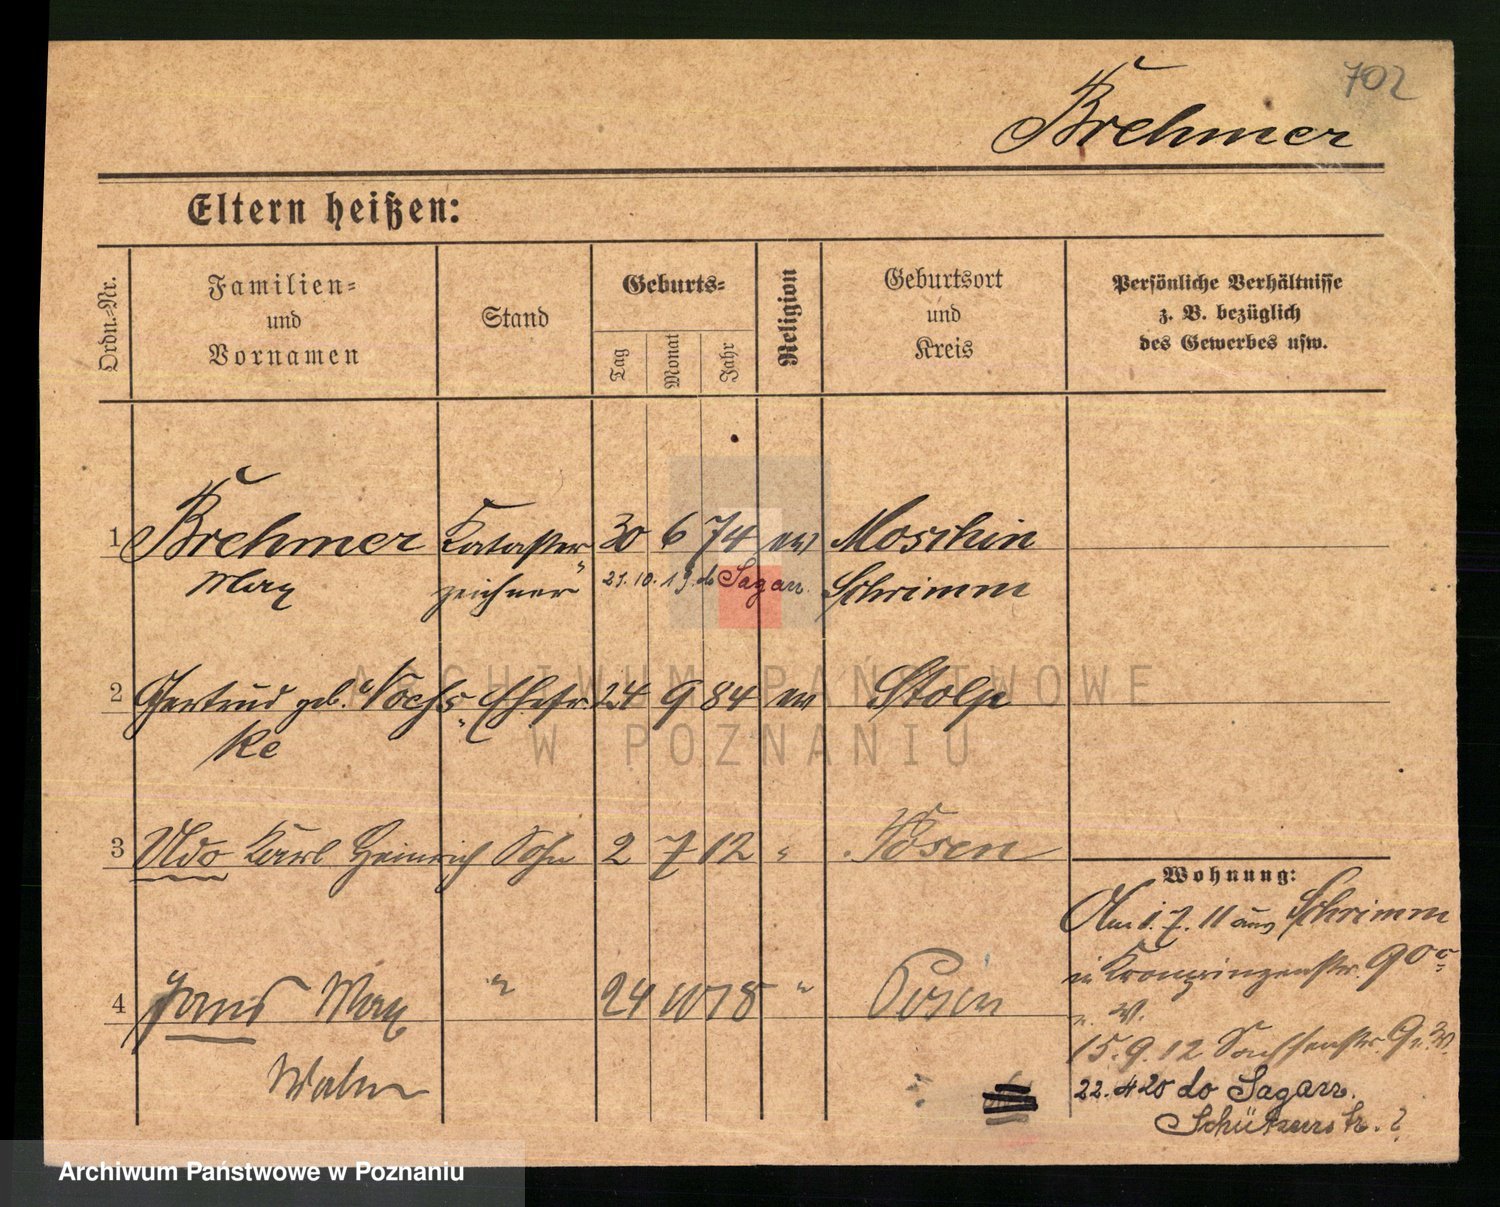 702
Brehmer
Eltern heißen:
Ordn.-Nr.
Familien- und Vornamen
Stand
Geburts-
Tag
Monat
Jahr
Religion
Geburtsort und Kreis
Persönliche Verhältnisse
z. B. bezüglich
des Gewerbes usw.
1 Brehmer Kataster 30 6 74 ev Moschin
Max zeichner Schrimm
21.10.19. do Sagan.
2 Gertrud geb. Ehefr. 24 9 84 ev Stolp
ke
3 Udo Karl Heinrich Sohn 2 7 12 " Posen
4 Hans Max " 24 10 18 " Posen
Wohnung:
Am 1.7.11 aus Schrimm
in Kronprinzenstr. 90
15.9.12 Sachsenstr. 9
22.4 20 do Sagan.
Schützenstr. ?
ARCHIWUM PAŃSTWOWE
W POZNANIU
Archiwum Państwowe w Poznaniu